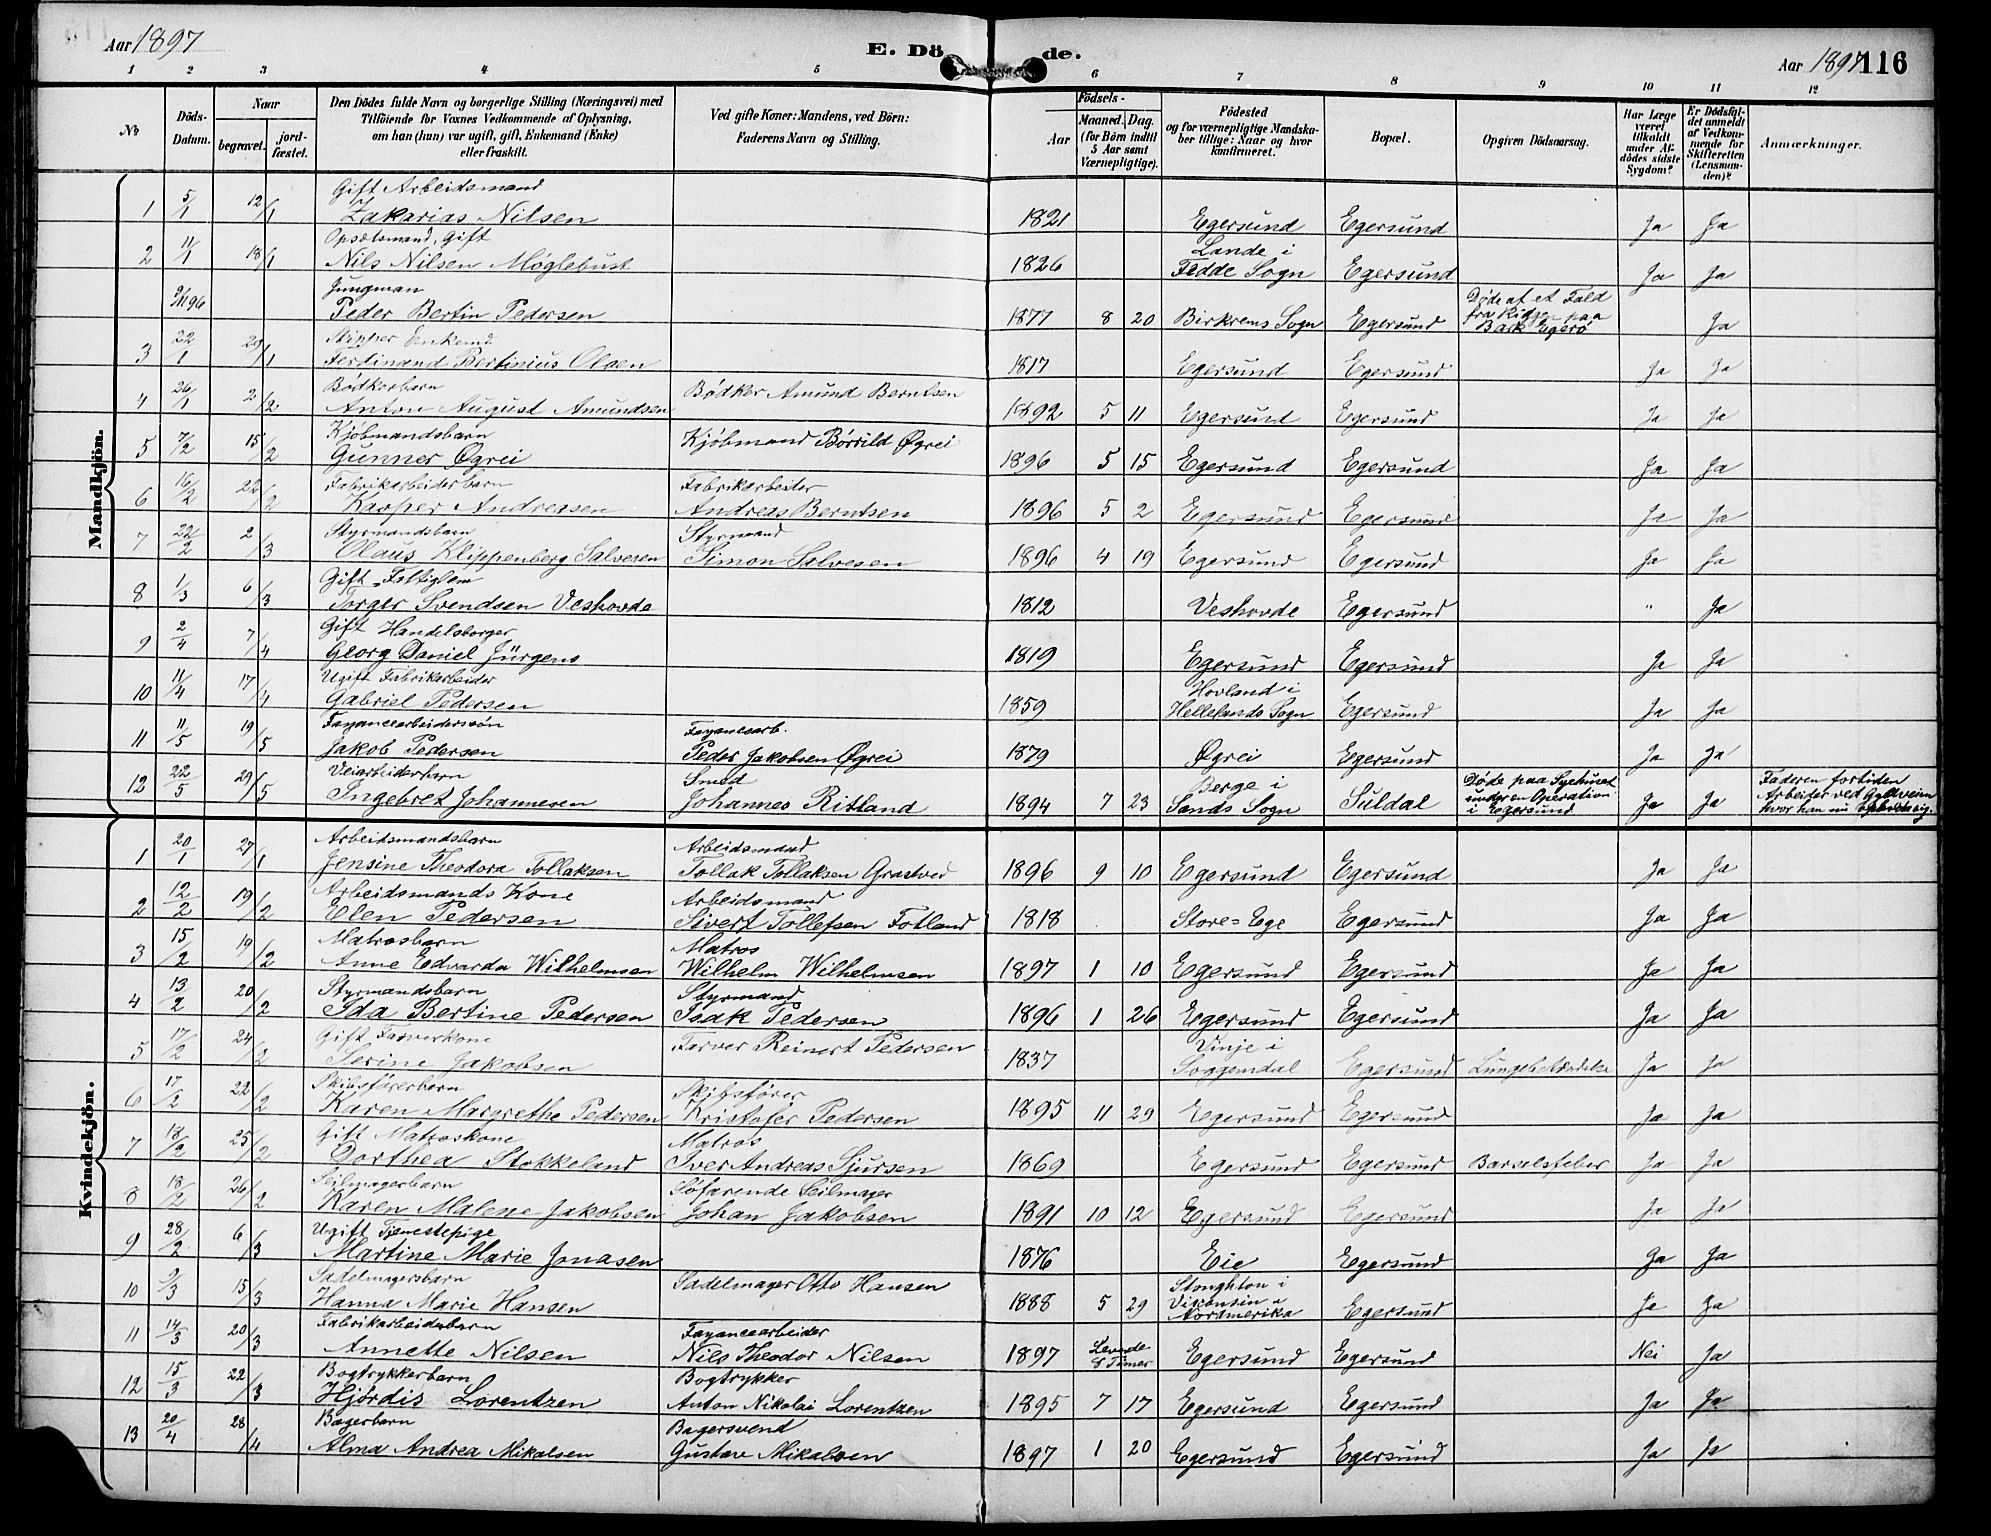 Aar 1897
E. Döde.
Aar 1897 116
1 2 3 4 5 6 7 8 9 10 11 12
No
Döds-Datum.
Naar
begravet.
jordfæstet.
Den Dödes fulde Navn og borgerlige Stilling (Næringsvei) med
Tilföiende for Voxnes Vedkommende af Oplysning,
om han (hun) var ugift, gift, Enkemand (Enke)
eller fraskilt.
Ved gifte Koner: Mandens, ved Börn:
Faderens Navn og Stilling.
Födsels-
Aar
Maaned. Dag.
(for Börn indtil
5 Aar samt
Værnepligtige).
Födested
og for værnepligtige Mandska-
ber tillige: Naar og hvor
konfirmeret.
Bopæl.
Opgiven Dödsaarsag.
Har Læge
været
tilkaldt
under Af-
dödes sidste
Sygdom?
Er Dödsfal-
det anmeldt
af Vedkom-
mende for
Skifteretten
(Lensman-
den)?
Anmærkninger.
Mandkjön.
Gift Arbeidsmand
1 5/1 12/1 Zakarias Nilsen 1821 Egersund Egersund Ja Ja
Opsætsmand, Gift Lande i
2 11/1 18/1 Nils Nilsen Møglebust 1826 Fedde Sogn Egersund Ja Ja
Jungman Døde af et Fald
9/11 96 Peder Bertin Pedersen 1877 8 20 Birkrems Sogn Egersund fra Riggen paa Ja
Bark Egerø
Skipper Enkemd
3 22/1 29/1 Ferdinand Bertinius Olsen 1817 Egersund Egersund Ja Ja
Bødkerbarn Bødker Amund Berntsen
4 26/1 2/2 Anton August Amundsen 1892 5 11 Egersund Egersund Ja Ja
Kjøbmandsbarn
5 7/2 15/2 Gunner Øgrei Kjøbmand Børrild Øgrei 1896 5 15 Egersund Egersund Ja Ja
Fabrikarbeiderbarn Fabrikarbeider
6 16/2 22/2 Kasper Andreasen Andreas Berntsen 1896 5 2 Egersund Egersund Ja Ja
Styrmandsbarn Styrmand
7 22/2 2/3 Olaus Klippenberg Salvesen Simon Salvesen 1896 4 19 Egersund Egersund Ja Ja
Gift Fattiglem
8 1/3 6/3 Torger Svendsen Veshovde 1812 Veshovde Egersund " Ja
Gift Handelsborger
9 2/4 7/4 Georg Daniel Jürgens 1819 Egersund Egersund Ja Ja
Ugift Fabrikarbeider Hovland i
10 11/4 17/4 Gabriel Pedersen 1859 Hellelands Sogn Egersund Ja Ja
Fayancearbeidersøn Fayancearb.
11 11/5 19/5 Jakob Pedersen Peder Jakobsen Øgrei 1879 Øgrei Egersund Ja Ja
Veiarbeiderbarn Smed Berge i Døde paa Sygehuset Faderen fortiden
12 22/5 29/5 Ingebret Johannesen Johannes Ritland 1894 7 23 Sands Sogn Suldal under en Operation Ja Ja Arbeider ved
i Egersund hvor han nu
Kvindekjön.
Arbeidsmandsbarn Arbeidsmand
1 20/1 27/1 Jensine Theodora Tollaksen Tollak Tollaksen Grastved 1896 9 10 Egersund Egersund Ja Ja
Arbeidsmands Kone Arbeidsmand
2 12/2 19/2 Elen Pedersen Sivert Tollefsen Fotland 1818 Store=Ege Egersund Ja Ja
Matrosbarn Matros
3 15/2 19/2 Anne Edvarda Wilhelmsen Wilhelm Wilhelmsen 1897 1 10 Egersund Egersund Ja Ja
Styrmandsbarn Styrmand
4 13/2 20/2 Ida Bertine Pedersen Isak Pedersen 1896 1 26 Egersund Egersund Ja Ja
Gift Farverkone Farver Reinert Pedersen Vinje i
5 17/2 24/2 Serine Jakobsen 1837 Soggendal Egersund Lungebetændelse Ja Ja
Skibsførerbarn Skibsfører
6 17/2 22/2 Karen Margrethe Pedersen Kristofer Pedersen 1895 11 29 Egersund Egersund Ja Ja
Gift Matroskone Matros
7 18/2 25/2 Dorthea Stokkeland Iver Andreas Sjursen 1869 Egersund Egersund Barselsfeber Ja Ja
Seilmagerbarn Søfarende Seilmager
8 18/2 26/2 Karen Malene Jakobsen Johan Jakobsen 1891 10 12 Egersund Egersund Ja Ja
Ugift Tjenestepige
9 28/2 6/3 Martine Marie Jonasen 1876 Eie Egersund Ja Ja
Sadelmagersbarn Sadelmager Otto Hansen Stoughton i
10 9/3 15/3 Hanna Marie Hansen 1888 5 29 Visconsin Egersund Ja Ja
Nordmerika
Fabrikarbeiderbarn Fayancearbeider Levede
11 14/3 20/3 Annette Nilsen Nils Theodor Nilsen 1897 8 Timer Egersund Egersund Nei Ja
Bogtrykkerbarn Bogtrykker
12 15/3 22/3 Hjørdis Lorentzen Anton Nikolai Lorentzen 1895 7 17 Egersund Egersund Ja Ja
Bagerbarn Bagersvend
13 20/4 28/4 Alma Andrea Mikalsen Gustav Mikalsen 1897 1 20 Egersund Egersund Ja Ja